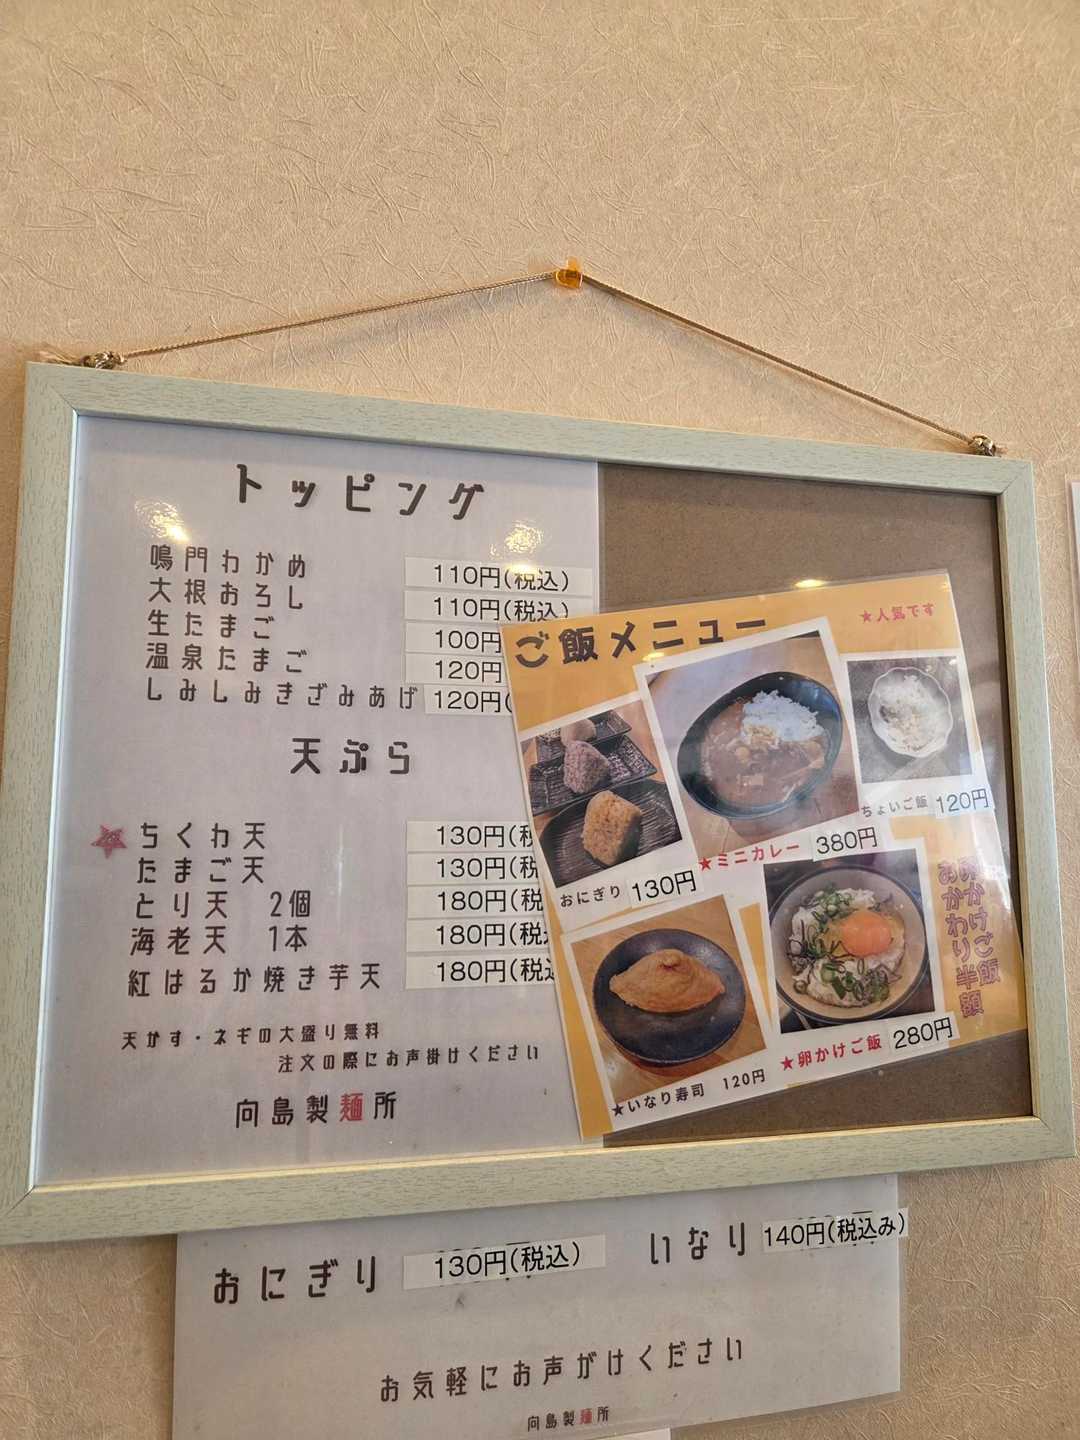 トッピング
鳴門わかめ 110円(税込)
大根おろし 110円(税込)
生たまご 100円
温泉たまご 120円
しみしみきざみあげ 120円(
天ぷら
ちくわ天 130円(税
たまご天 130円(税
とり天 2個 180円(税
海老天 1本 180円(税込
紅はるか焼き芋天 180円(税込
天かす・ネギの大盛り無料
注文の際にお声掛けください
向島製麺所
ご飯メニュー
★人気です
ちょいご飯 120円
★ミニカレー 380円
おにぎり 130円
卵かけご飯
おかわり半額
★卵かけご飯 280円
★いなり寿司 120円
おにぎり 130円(税込)
いなり 140円(税込み)
お気軽にお声がけください
向島製麺所